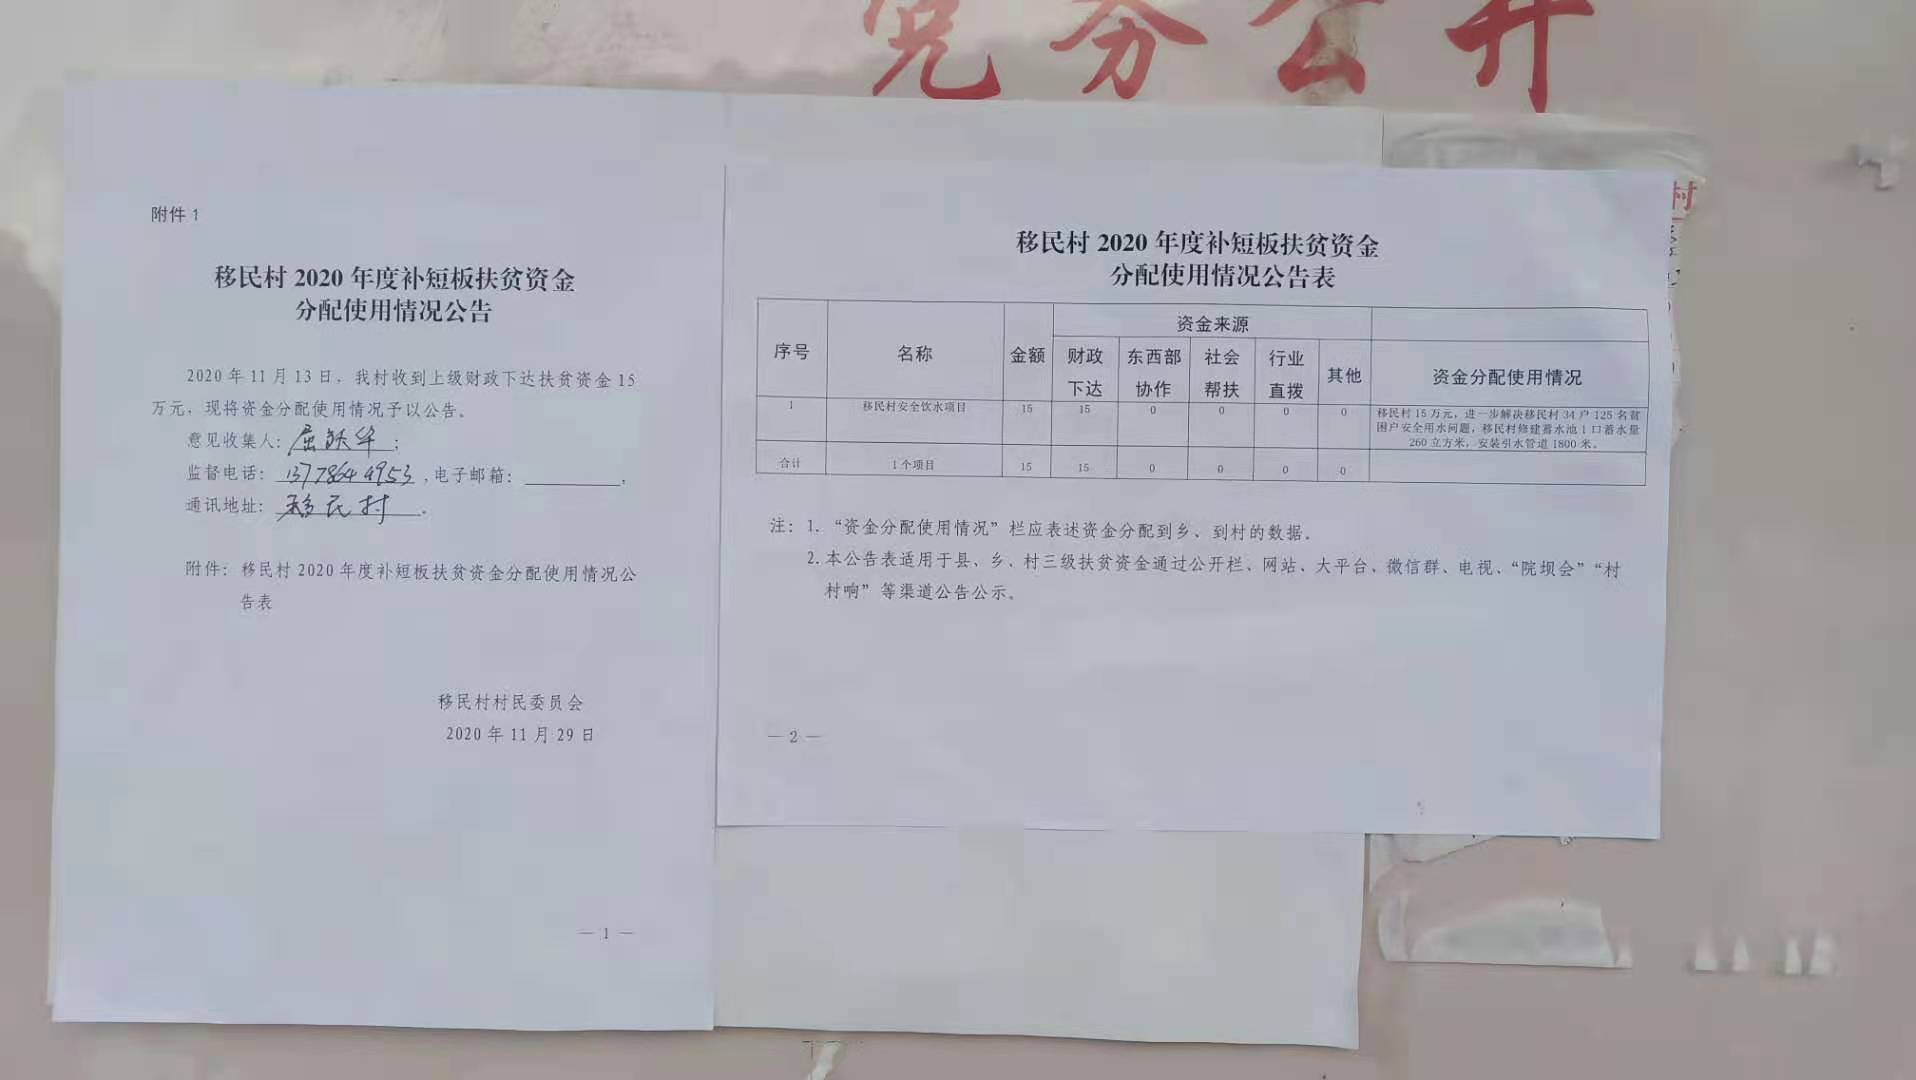 党务公开
附件 1
移民村 2020 年度补短板扶贫资金
分配使用情况公告
2020 年 11 月 13 日，我村收到上级财政下达扶贫资金 15
万元，现将资金分配使用情况予以公告。
意见收集人：屈跃华；
监督电话：13778644953，电子邮箱：，
通讯地址：移民村.
附件：移民村 2020 年度补短板扶贫资金分配使用情况公
告表
移民村村民委员会
2020 年 11 月 29 日
— 1 —
移民村 2020 年度补短板扶贫资金
分配使用情况公告表
序号 名称 金额 资金来源 资金分配使用情况
财政下达 东西部协作 社会帮扶 行业直拨 其他
1 移民村安全饮水项目 15 15 0 0 0 0 移民村 15 万元，进一步解决移民村 34 户 125 名贫
困户安全用水问题，移民村修建蓄水池 1 口蓄水量
260 立方米，安装引水管道 1800 米。
合计 1 个项目 15 15 0 0 0 0
注：1. “资金分配使用情况”栏应表述资金分配到乡、到村的数据。
2. 本公告表适用于县、乡、村三级扶贫资金通过公开栏、网站、大平台、微信群、电视、“院坝会”“村
村响”等渠道公告公示。
— 2 —
村